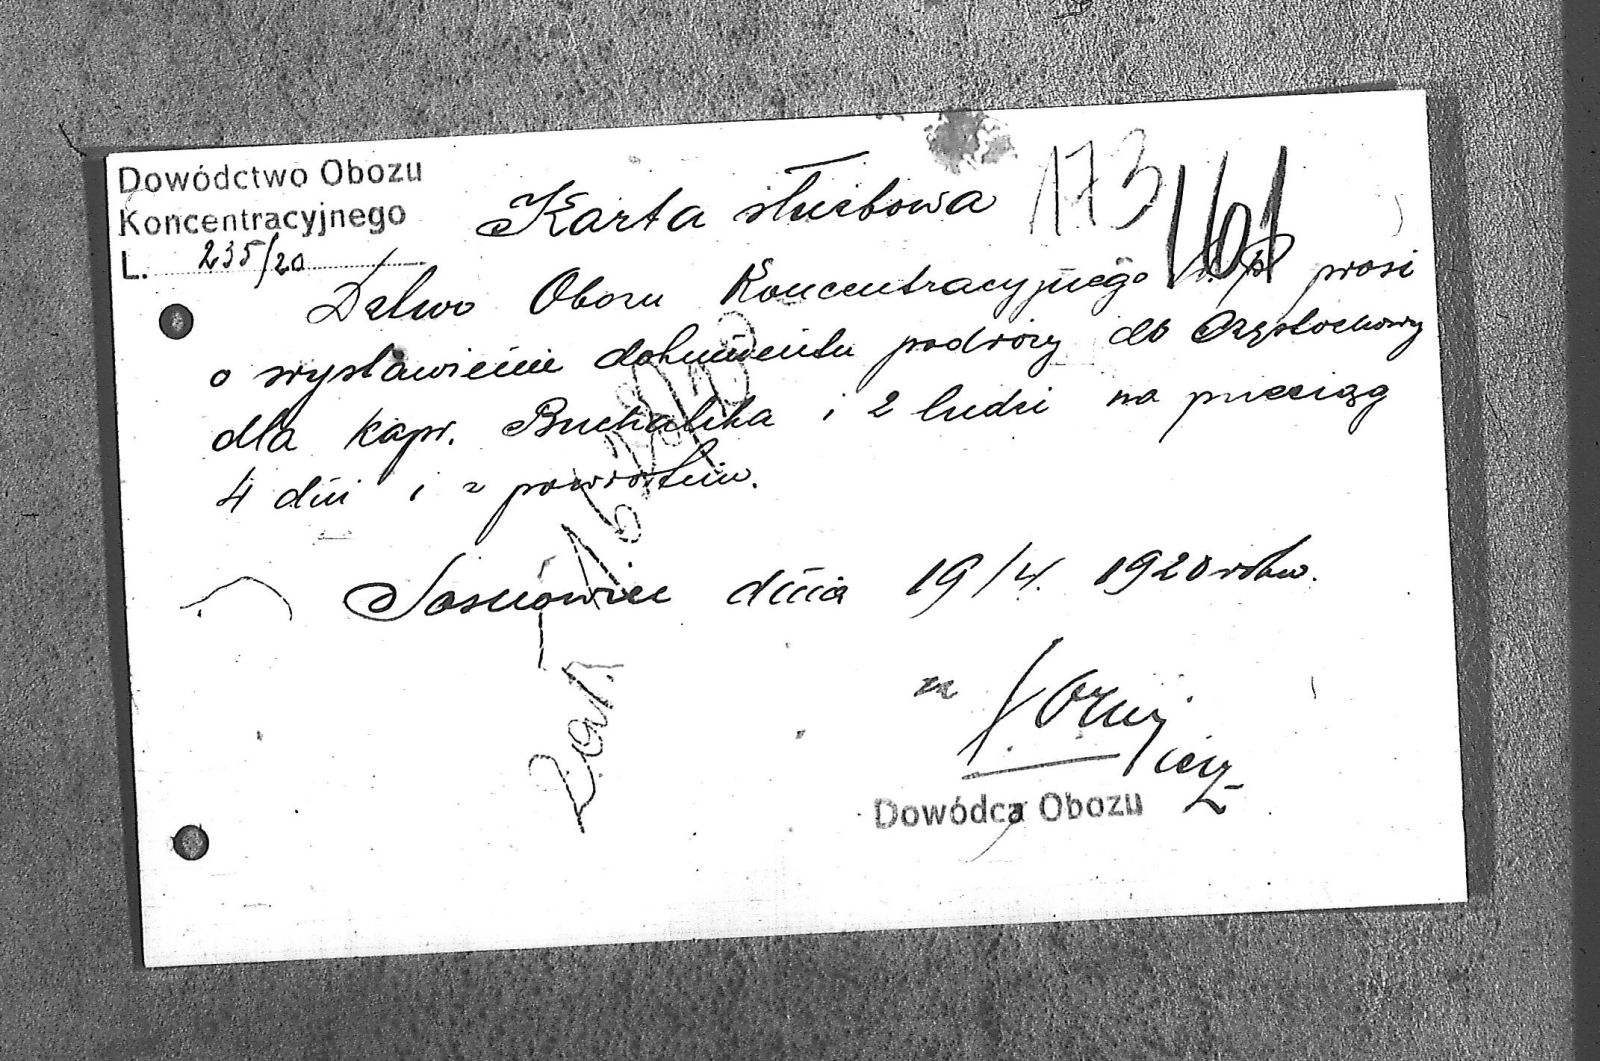 Dowództwo Obozu
Koncentracyjnego
L. 235/20
Karta służbowa
173
161
Dztwo Obozu Koncentracyjnego prosi
o wystawienie dokumentu podróży do Częstochowy
dla kapr. Buchalika i 2 ludzi na przeciąg
4 dni i z powrotem.
Sosnówiec dnia 19/4. 1920 roku.
Dowódca Obozu